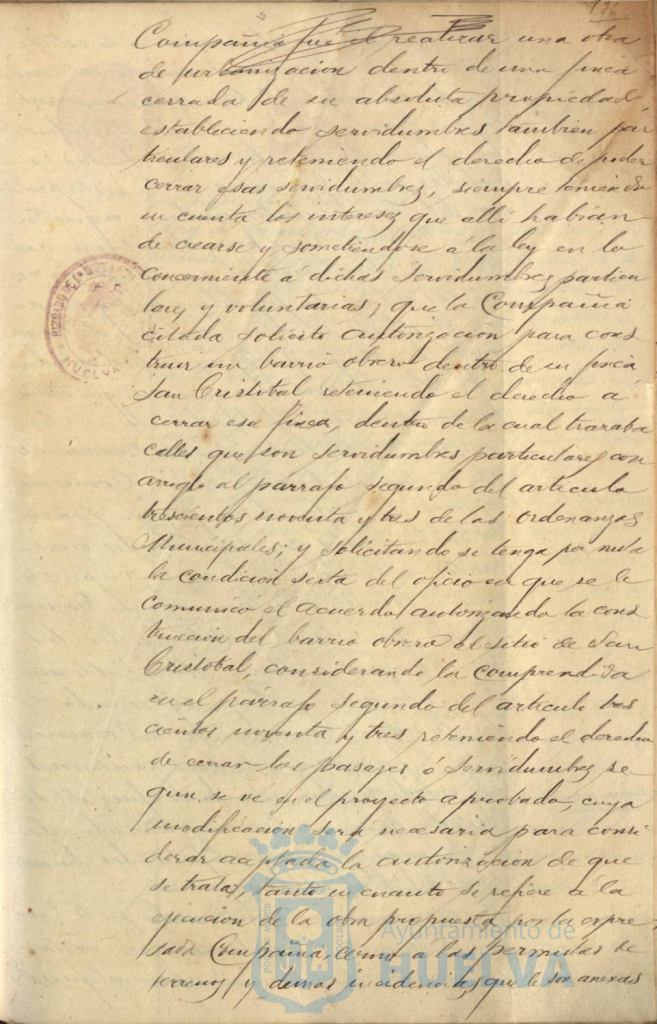 Compañia fué el realizar una obra
de urbanizacion dentro de una finca
cerrada de su absoluta propiedad
estableciendo servidumbres tambien par
ticulares y reteniendo el derecho de poder
cerrar esas servidumbres, siempre teniendo
en cuenta los intereses que alli habian
de crearse y sometiendose á la ley en lo
concerniente á dichas servidumbres particu
lares y voluntarias; que la Compañia
citada solicitó autorizacion para cons
truir un barrio obrero dentro de su finca
San Cristobal reteniendo el derecho á
cerrar esa finca, dentro de la cual trazaba
calles que son servidumbres particulares con
arreglo al parrafo segundo del articulo
trescientos noventa y tres de las Ordenanzas
Municipales; y solicitando se tenga por nula
la condicion sexta del oficio en que se le
comunicó el acuerdo autorizando la cons
truccion del barrio obrero al sitio de San
Cristobal, considerando la comprendida
en el párrafo segundo del articulo tres
cientos noventa y tres reteniendo el derecho
de cerrar los pasajes ó servidumbres se
gun se vé en el proyecto aprobado, cuya
modificacion será necesaria para consi
derar aceptada la autorizacion de que
se trata, tanto en cuanto se refiere á la
ejecucion de la obra propuesta por la expre
sada Compañia, como a las permutas de
terrenos y demas incidencias que le son anexas
HUELVA
Ayuntamiento de
HUELVA